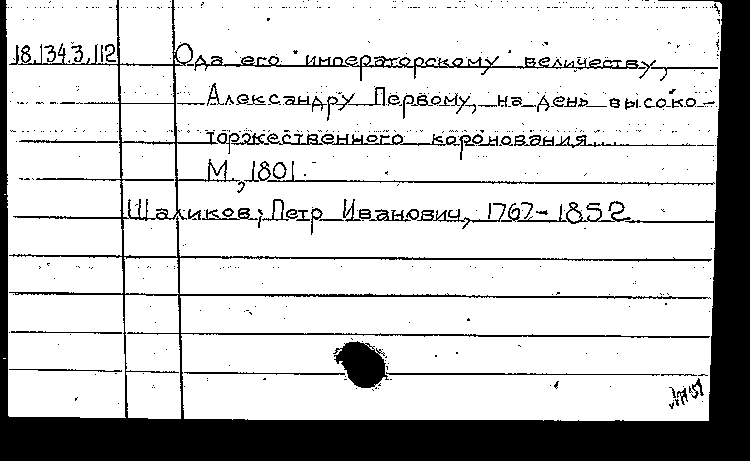 18.134.3.112 Ода его императорскому величеству,
Александру Первому, на день высоко-
торжественного коронования...
М., 1801.
Шаликов, Петр Иванович, 1767-1852